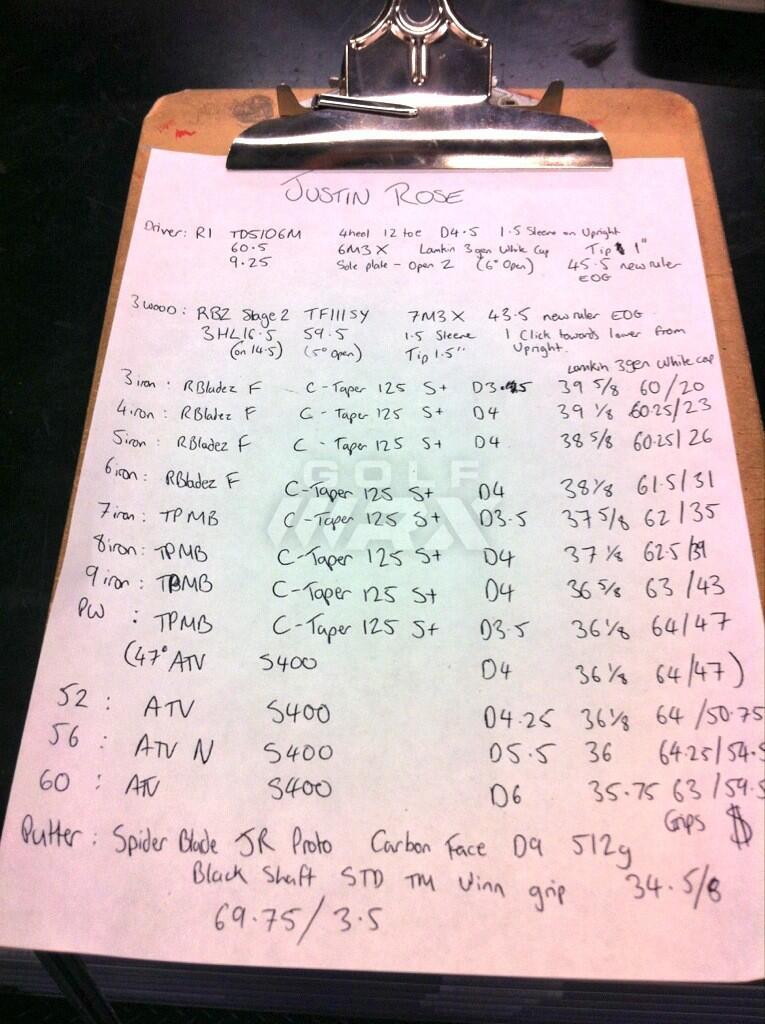 JUSTIN ROSE
Driver: R1 TD5106M 4heel 12 toe D4.5 1.5 Sleeve on Upright
60.5 6M3 X Lamkin 3gen White Cap Tip 1"
9.25 Sole plate - Open 2 (6° Open) 45.5 new ruler
EOG
3 wood: RBZ Stage 2 TF111SY 7M3 X 43.5 new ruler EOG.
3HL16.5 59.5 1.5 Sleeve 1 Click towards lower from
(on 14.5) (5° Open) Tip 1.5" Upright.
Lamkin 3gen White cap
3 iron: RBladez F C-Taper 125 S+ D3.5 39 5/8 60/20
4 iron: RBladez F C-Taper 125 S+ D4 39 1/8 60.25/23
5 iron: RBladez F C-Taper 125 S+ D4 38 5/8 60.25/26
6 iron: RBladez F C-Taper 125 S+ D4 38 1/8 61.5/31
7 iron: TPMB C-Taper 125 S+ D3.5 37 5/8 62/35
8 iron: TPMB C-Taper 125 S+ D4 37 1/8 62.5/39
9 iron: TPMB C-Taper 125 S+ D4 36 5/8 63/43
PW : TPMB C-Taper 125 S+ D3.5 36 1/8 64/47
(47° ATV S400 D4 36 1/8 64/47)
52 : ATV S400 D4.25 36 1/8 64/50.75
56 : ATV N S400 D5.5 36 64.25/54.5
60 : ATV S400 D6 35.75 63/59.5
Grips
Putter: Spider Blade JR Proto Carbon Face D9 512g
Black Shaft STD TM Winn grip 34.5/8
69.75/3.5
GOLF
WRX